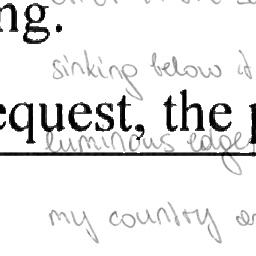 ng.
sinking below it
equest, the
luminous edges
my country